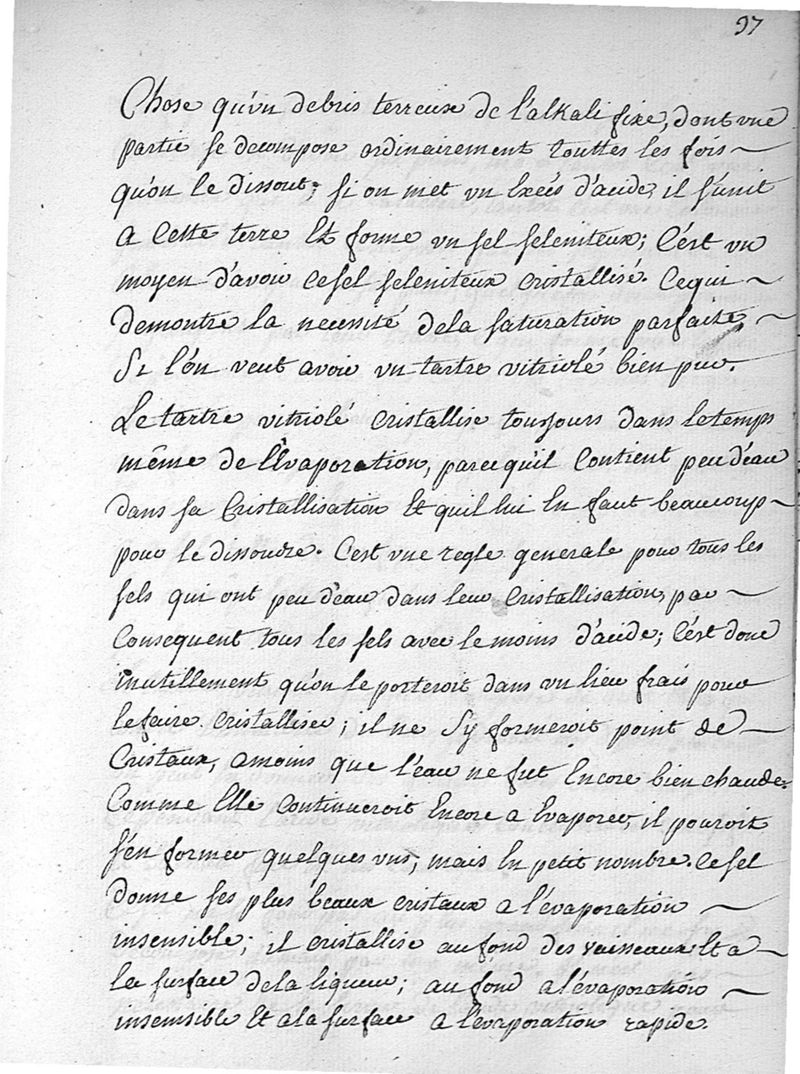 97
Chose qu'un debris terreux de l'alkali fixe, dont une
partie se decompose ordinairement touttes les fois
qu'on le dissout; si on met un Excés d'acide, il s'unit
a Cette terre Et forme un sel seleniteux; C'est un
moyen d'avoir Ce sel seleniteux Cristallisé. Ce qui
demontre la necessité de la saturation parfaite,
Si l'ón veut avoir un tartre vitriolé bien pur.
Le tartre vitriolé Cristallise tousjours dans le temps
même de l'Evaporation, parce qu'il Contient peu d'eau
dans sa Cristallisation Et qu'il lui En faut beaucoup
pour le dissoudre. C'est une regle generale pour tous les
sels qui ont peu d'eau dans leur Cristallisation, par
Consequent tous les sels avec le moins d'acide; C'est donc
inutillement qu'on le porteroit dans un lieu frais pour
le faire Cristalliser; il ne s'y formeroit point de
Cristaux, a moins que l'eau ne fut Encore bien chaude.
Comme Elle Continueroit Encore a Evaporer, il pouroit
s'en former quelques uns, mais En petit nombre. Ce sel
donne ses plus beaux cristaux a l'évaporation
insensible; il cristallise au fond des vaisseaux Et a
la surface de la liqueur; au fond a l'évaporation
insensible Et a la surface a l'évaporation rapide.